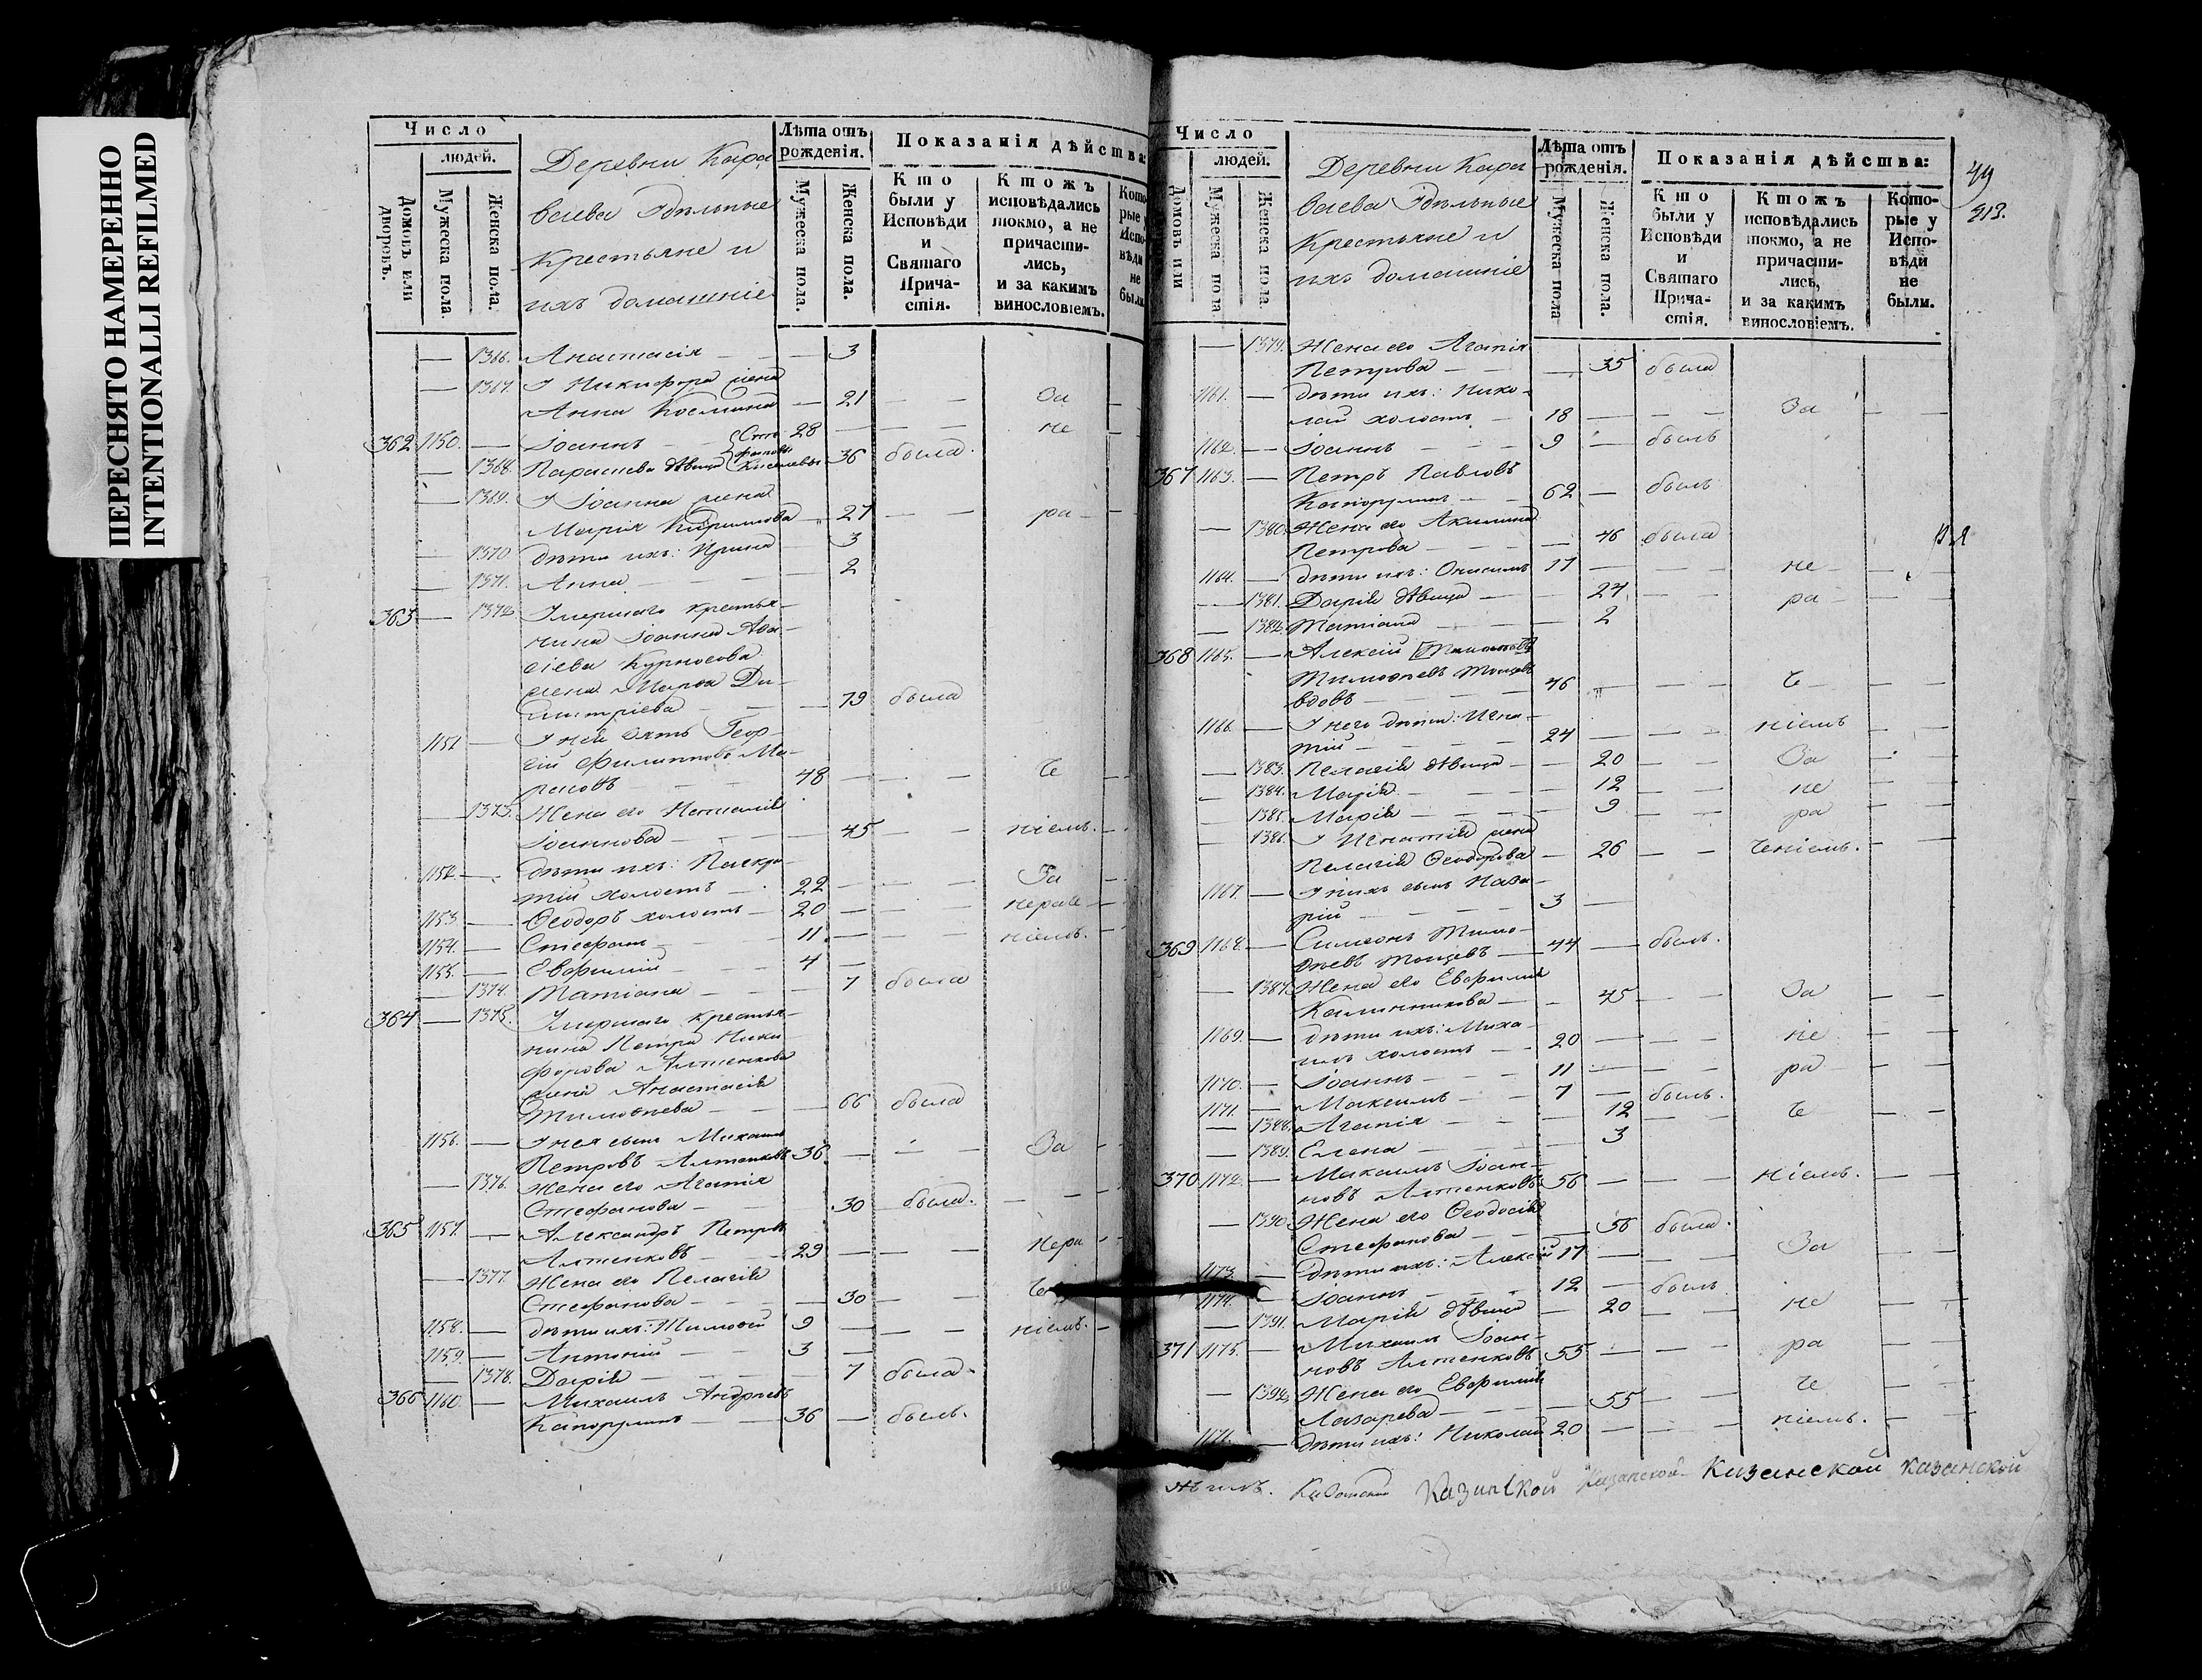 ПЕРЕСНЯТО НАМЕРЕННО
INTENTIONALLI REFILMED
Число
людей.
Домовъ или дворовъ.
Мужеска пола.
Женска пола.
Деревни Кара
баева Удѣльные
Крестьяне и
ихъ домашніе
Лѣта отъ рожденія.
Мужеска пола.
Женска пола.
Показанія дѣйства:
Кто были у Исповѣди и Святаго Причастія.
Ктожъ исповѣдались токмо, а не причастились, и за какимъ винословіемъ.
Которые у Исповѣди не были.
— 1366. Анастасія — — — 3
— 1367. У Никифора жена
Анна Космина — 21 — — За —
362 1150. — Іоаннъ 28 — — — не
— 1368. Параскева дѣвица Киселевы 36 была.
— 1369. У Іоанна жена
Марія Кирилова — 27 — — ра —
— 1370. дѣти ихъ: Ирина — 3
— 1371. Анна — — — 2
363 — 1372. Умершаго крестья-
нина Іоанна
сіева Курносова
жена Марѳа Ди-
митріева — — — 79 была
1151 — У ней зять Геор-
гій Филипповъ
48 — — — че
— 1373. Жена его Наталія
Іоаннова — — — 45 — — ніемъ.
1152. — дѣти ихъ: Панкра-
тій холостъ — 22 — — — За
1153 — Ѳеодоръ холостъ — 20 — — — нераче
1154. — Стефанъ — — 11 — — — ніемъ.
1155. — Евфимій — — 4 —
— 1374. Татіана — — — 7 была
364 — 1375. Умершаго крестья-
нина Петра Ники-
форова Алтенкова
жена Анастасія
Тимоѳеева — — — 66 была
1156. — У нея сынъ Михаилъ
Петровъ Алтенковъ 36 — — — За
— 1376. Жена его Агапія
Стефанова — — 30 была.
365 1157. — Александръ Петровъ
Алтенковъ — — 29 — — — нера
— 1377. Жена его Пелагія
Стефанова — — — 30 — — че
1158. — дѣти ихъ: Тимоѳей 9 — — — ніемъ.
1159. — Антоній — — 3 —
— 1378. Дарія — — — 7 была
366 1160. — Михаилъ Андреевъ
Капорулинъ — — 36 — былъ.
Число
людей.
Домовъ или
Мужеска пола
Женска пола.
Деревни Кара
баева Удѣльные
Крестьяне и
ихъ домашніе
Лѣта отъ рожденія.
Мужеска пола
Женска пола.
Показанія дѣйства:
Кто были у Исповѣди и Святаго Причастія.
Ктожъ исповѣдались токмо, а не причастились, и за какимъ винословіемъ.
Которые у Исповѣди не были.
49
313.
— 1379. Жена его Агапія
Петрова — — — 35 была
1161. — дѣти ихъ: Нико-
лай холостъ — 18 — — — За — —
1162. — Іоаннъ — — 9 — былъ
367 1163. — Петръ Павловъ
Капорулинъ — — 62 — былъ
— 1380. Жена его Акилина
Петрова — — — 46 была
1164. — дѣти ихъ: Онисимъ 17 — — — не —
— 1381. Дарія дѣвица — — 24 — — ра —
— 1382. Татіана — — — 2
368 1165. — Алексій
Тимоѳеевъ
вдовъ — — 46 — — — че — —
1166. — У него дѣти: Игна-
тій — — — 24 — — — ніемъ —
— 1383. Пелагія дѣвица — — 20 — — За —
— 1384. Марія — — — 12 — — не —
— 1385. Марія — — — 9 — — ра —
— 1386. У Игнатія жена
Пелагія Ѳеодорова — 26 — — ченіемъ. —
1167. — У нихъ сынъ Наза-
рій — — — 3 —
369 1168. — Симеонъ Тимо-
ѳеевъ 44 — былъ.
— 1387. Жена его Евфимія
Калинникова — — 45 — — За — —
1169. — дѣти ихъ: Миха-
илъ холостъ — — 20 — — — не — —
1170. — Іоаннъ — — — 11 — — — ра — —
1171. — Максимъ — — 7 — былъ.
— 1388. Агапія — — — 12 че — —
— 1389. Елена — — — 3
370 1172. — Максимъ Іоан-
новъ Алтенковъ 56 — — — ніемъ. —
— 1390. Жена его Ѳеодосія
Стефанова — — — 56 была.
1173. — дѣти ихъ: Алексій 17 — — — За —
1174. — Іоаннъ — — 12 — былъ
— 1391. Марія дѣвица — 20 — — не — —
371 1175. — Михаилъ Іоан-
новъ Алтенковъ 55 — — — ра — —
— 1392. Жена его Евфимія
Лазарева — — — 55 — че — —
— дѣти ихъ: Николай 20 — — — ніемъ. — —
Казанской Казанской Казанской Казанской